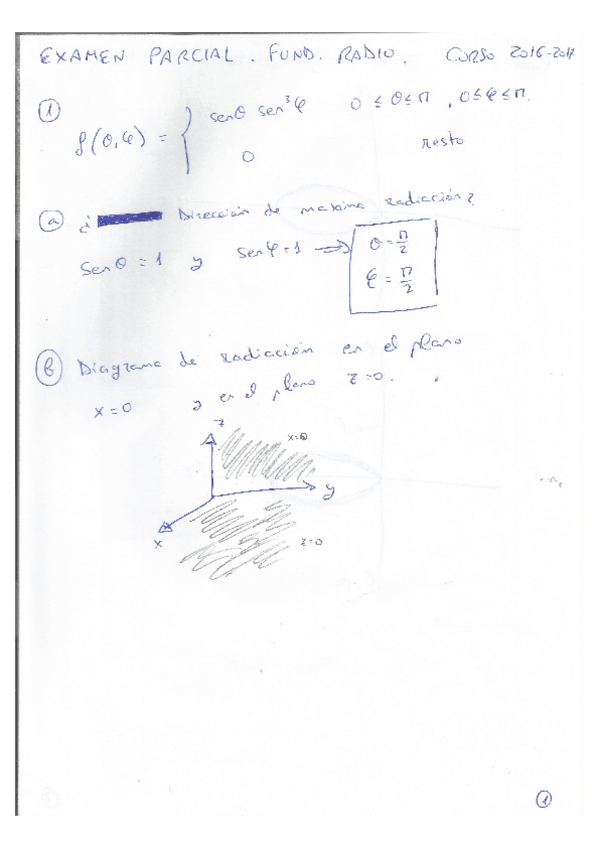 EXAMEN PARCIAL. FUND. RADIO. CURSO 2016-2017
① f(θ,φ) = { senθ sen³φ 0 ≤ θ ≤ π, 0 ≤ φ ≤ π.
0 resto
ⓐ ¿ Dirección de maxima radiación?
Senθ = 1 y senφ = 1 → θ = π/2
φ = π/2
ⓑ Diagrama de radiación en el plano
x=0 y en el plano z=0.
z
x=0
y
x
z=0
①